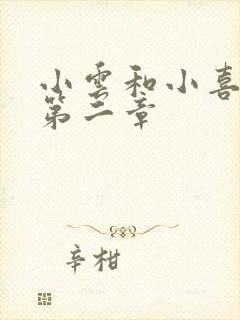 小雲和小喜
第二章
辛柑